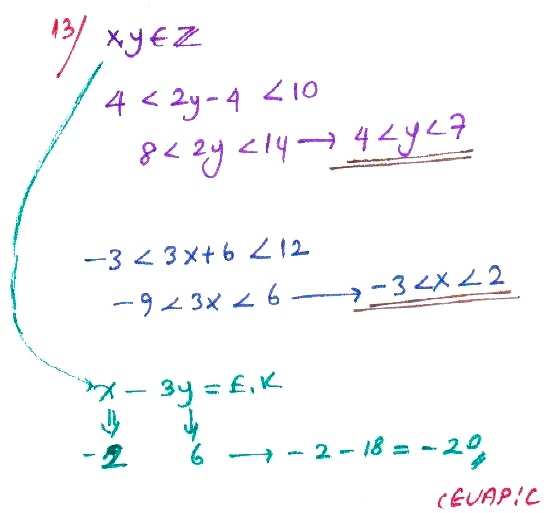 13/ x,y∈ℤ
4 < 2y-4 < 10
8 < 2y < 14 → 4 < y < 7
-3 < 3x+6 < 12
-9 < 3x < 6 → -3 < x < 2
x - 3y = E.K
⇓ ↓
-2 6 → -2-18 = -20
CEVAP:C